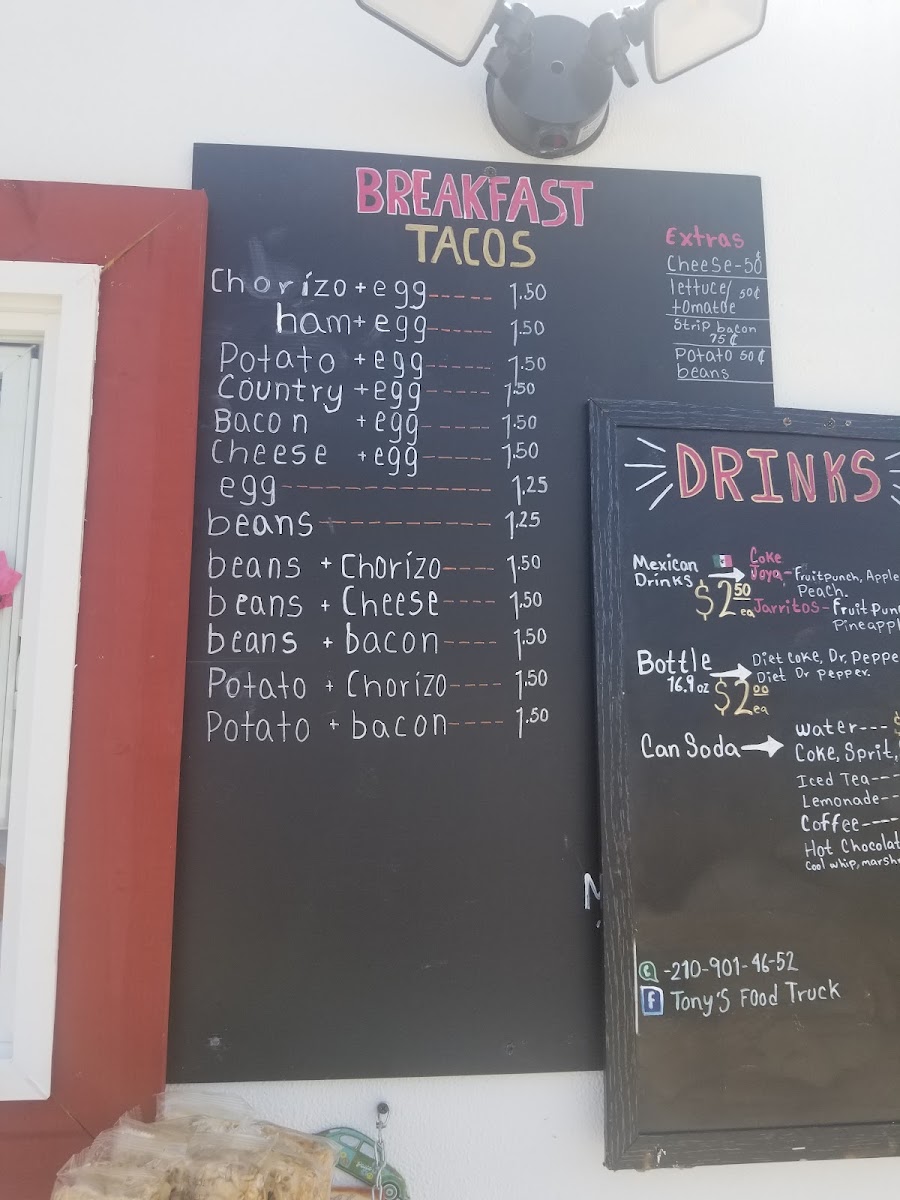 BREAKFAST
TACOS
Chorizo + egg ------ 1.50
ham + egg ------ 1.50
Potato + egg ------ 1.50
Country + egg ------ 1.50
Bacon + egg ------ 1.50
Cheese + egg ------ 1.50
egg ------------------ 1.25
beans --------------- 1.25
beans + Chorizo ---- 1.50
beans + Cheese ---- 1.50
beans + bacon ---- 1.50
Potato + Chorizo ---- 1.50
Potato + bacon ---- 1.50
Extras
Cheese - 50¢
lettuce/ 50¢
tomatoe
Strip bacon
75¢
Potato 50¢
beans
DRINKS
Mexican
Drinks
$2.50
ea
Coke
Joya - Fruitpunch, Apple
Peach.
Jarritos - Fruit Pun
Pineappl
Bottle
16.9oz
$2.00
ea
Diet Coke, Dr, Peppe
Diet Dr pepper.
Can Soda
water ---
Coke, Sprit,
Iced Tea ---
Lemonade --
Coffee ----
Hot Chocolat
Cool whip, marsh
-210-901-46-52
f Tony'S Food Truck